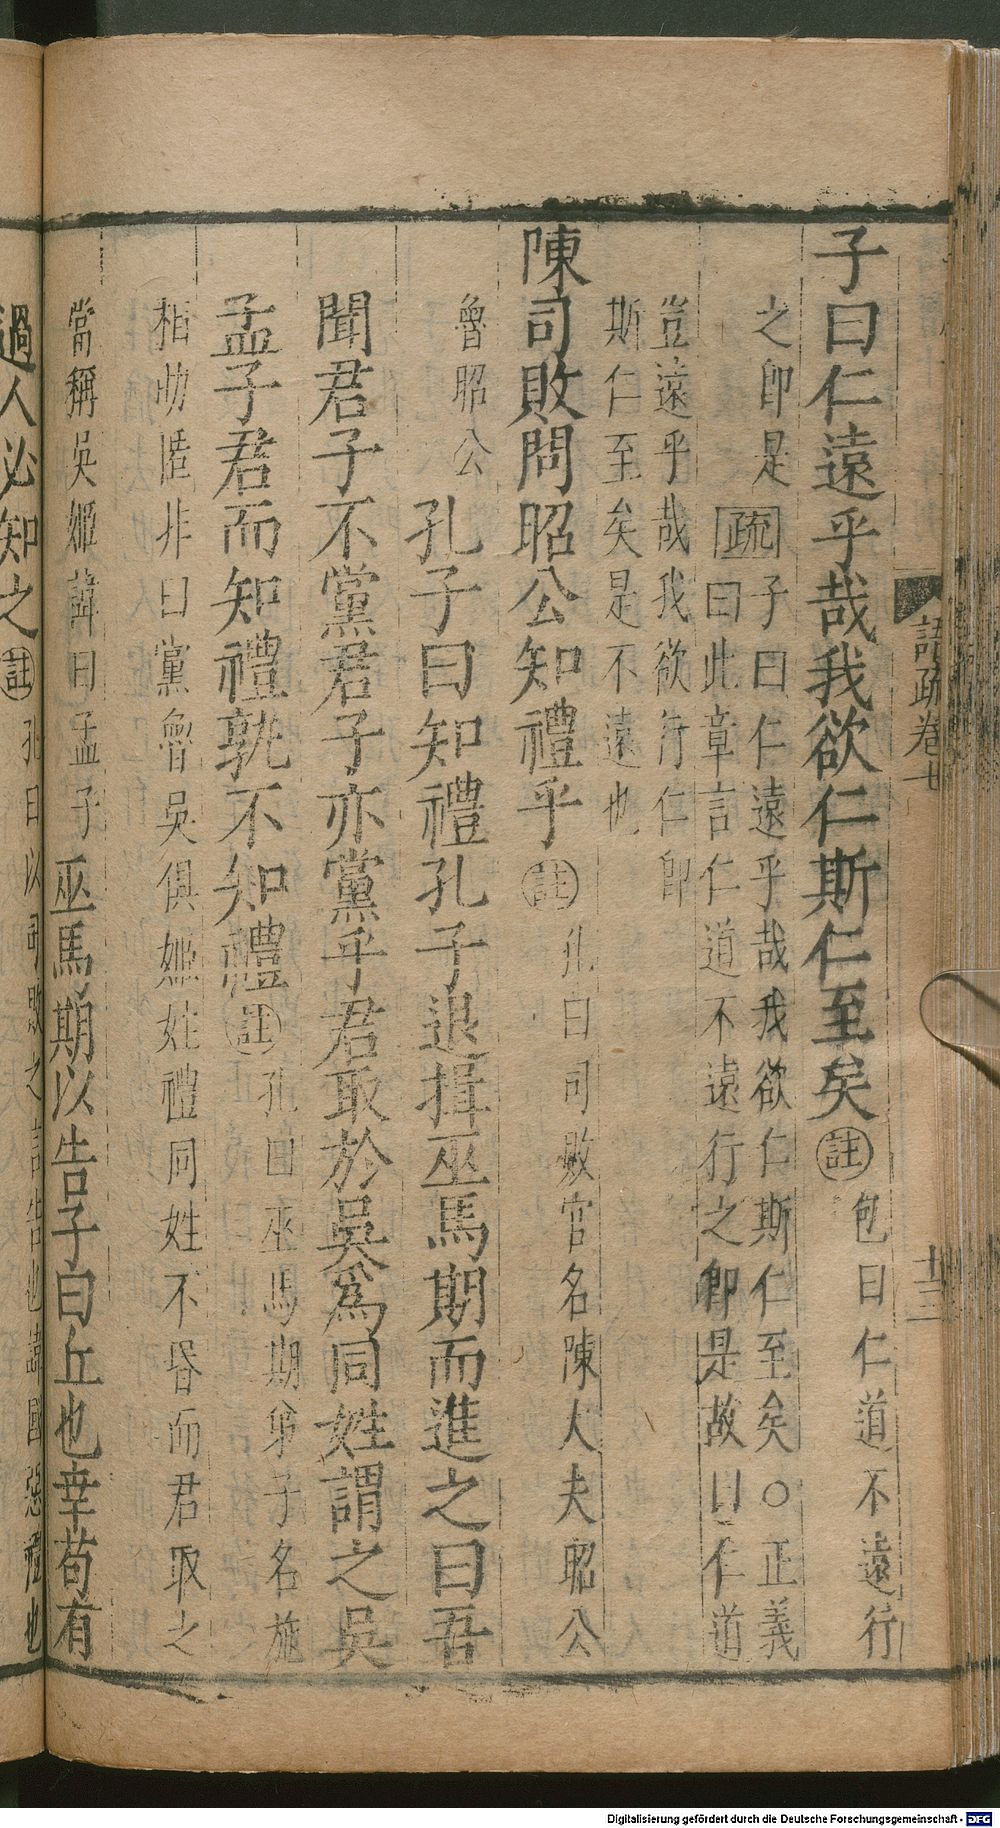 子曰仁遠乎哉我欲仁斯仁至矣註包曰仁道不遠行
之卽是疏子曰仁遠乎哉我欲仁斯仁至矣○正義
曰此章言仁道不遠行之卽是故曰仁道
豈遠乎哉我欲行仁卽
斯仁至矣是不遠也
陳司敗問昭公知禮乎註孔曰司敗官名陳大夫昭公
魯昭公
孔子曰知禮孔子退揖巫馬期而進之曰吾
聞君子不黨君子亦黨乎君取於吳爲同姓謂之吳
孟子君而知禮孰不知禮註孔曰巫馬期弟子名施
相助匿非曰黨魯吳俱姬姓禮同姓不昏而君取之
當稱吳姬諱曰孟子
巫馬期以告子曰丘也幸苟有
過人必知之註孔曰以司敗之言告也諱國惡禮也
語疏卷七
十三
Digitalisierung gefördert durch die Deutsche Forschungsgemeinschaft - DFG